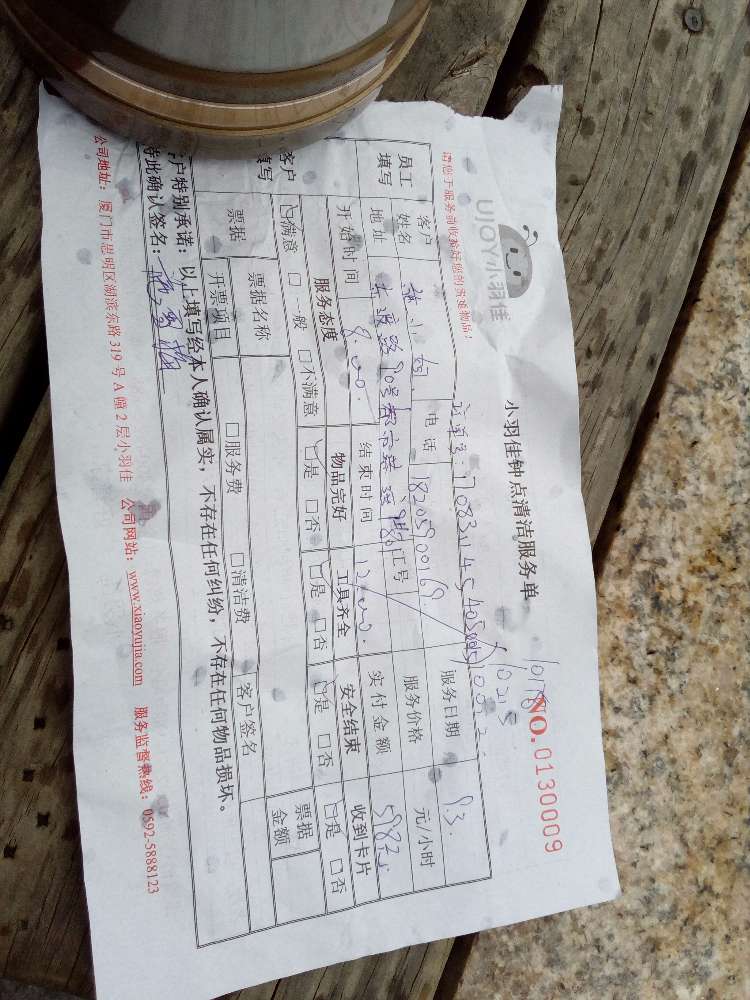 UJOY小羽佳
小羽佳钟点清洁服务单
NO. 0130009
请您于服务前收捡好您的贵重物品!
员工填写
客户姓名
电话
服务日期 9.3.
地址
证号
服务价格 元/小时
开始时间 8:00
结束时间
实付金额
客户填写
服务态度 物品完好 工具齐全 安全结束 收到卡片
☑满意 □一般 □不满意 ☑是 □否 ☑是 □否 ☑是 □否 ☑是 □否
票据
票据名称
客户签名
票据金额
开票项目 □服务费 □清洁费
户特别承诺:以上填写经本人确认属实,不存在任何纠纷,不存在任何物品损坏。
特此确认签名:
公司地址:厦门市思明区湖滨东路 319 号 A 幢 2 层小羽佳 公司网站:www.xiaoyujia.com 服务监督热线:0592-5888123